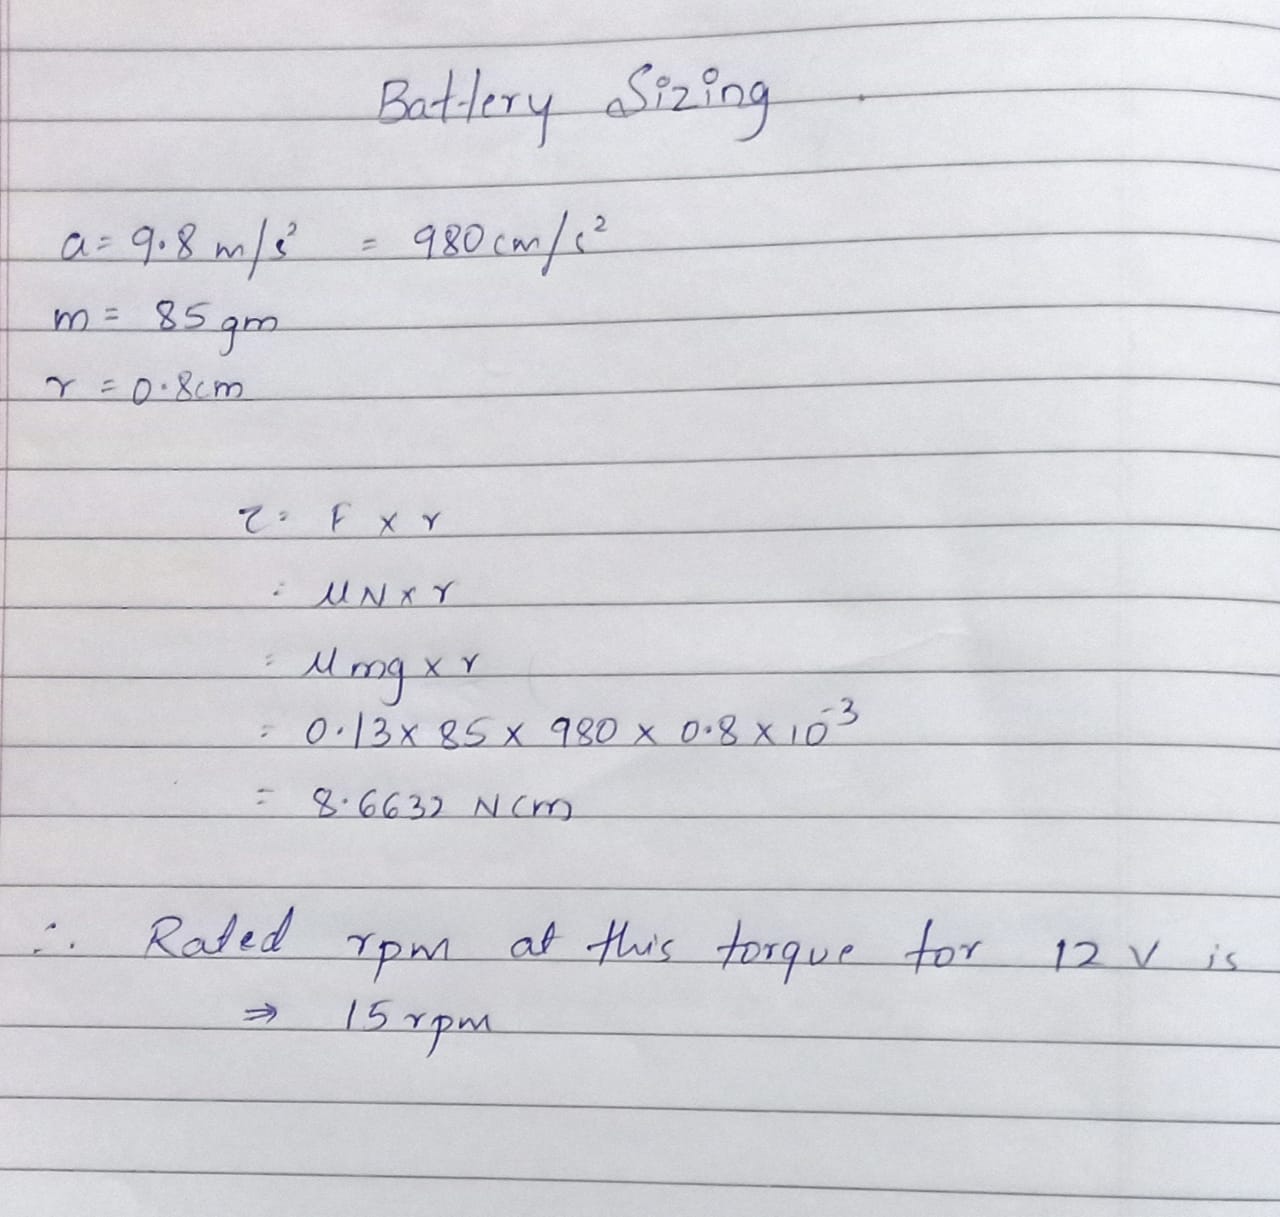 Battery Sizing
a = 9.8 m/s² = 980 cm/s²
m = 85 gm
r = 0.8cm
τ = F × r
= μN × r
= μmg × r
= 0.13 × 85 × 980 × 0.8 × 10⁻³
= 8.6632 Ncm
∴ Rated rpm at this torque for 12 V is
⇒ 15 rpm